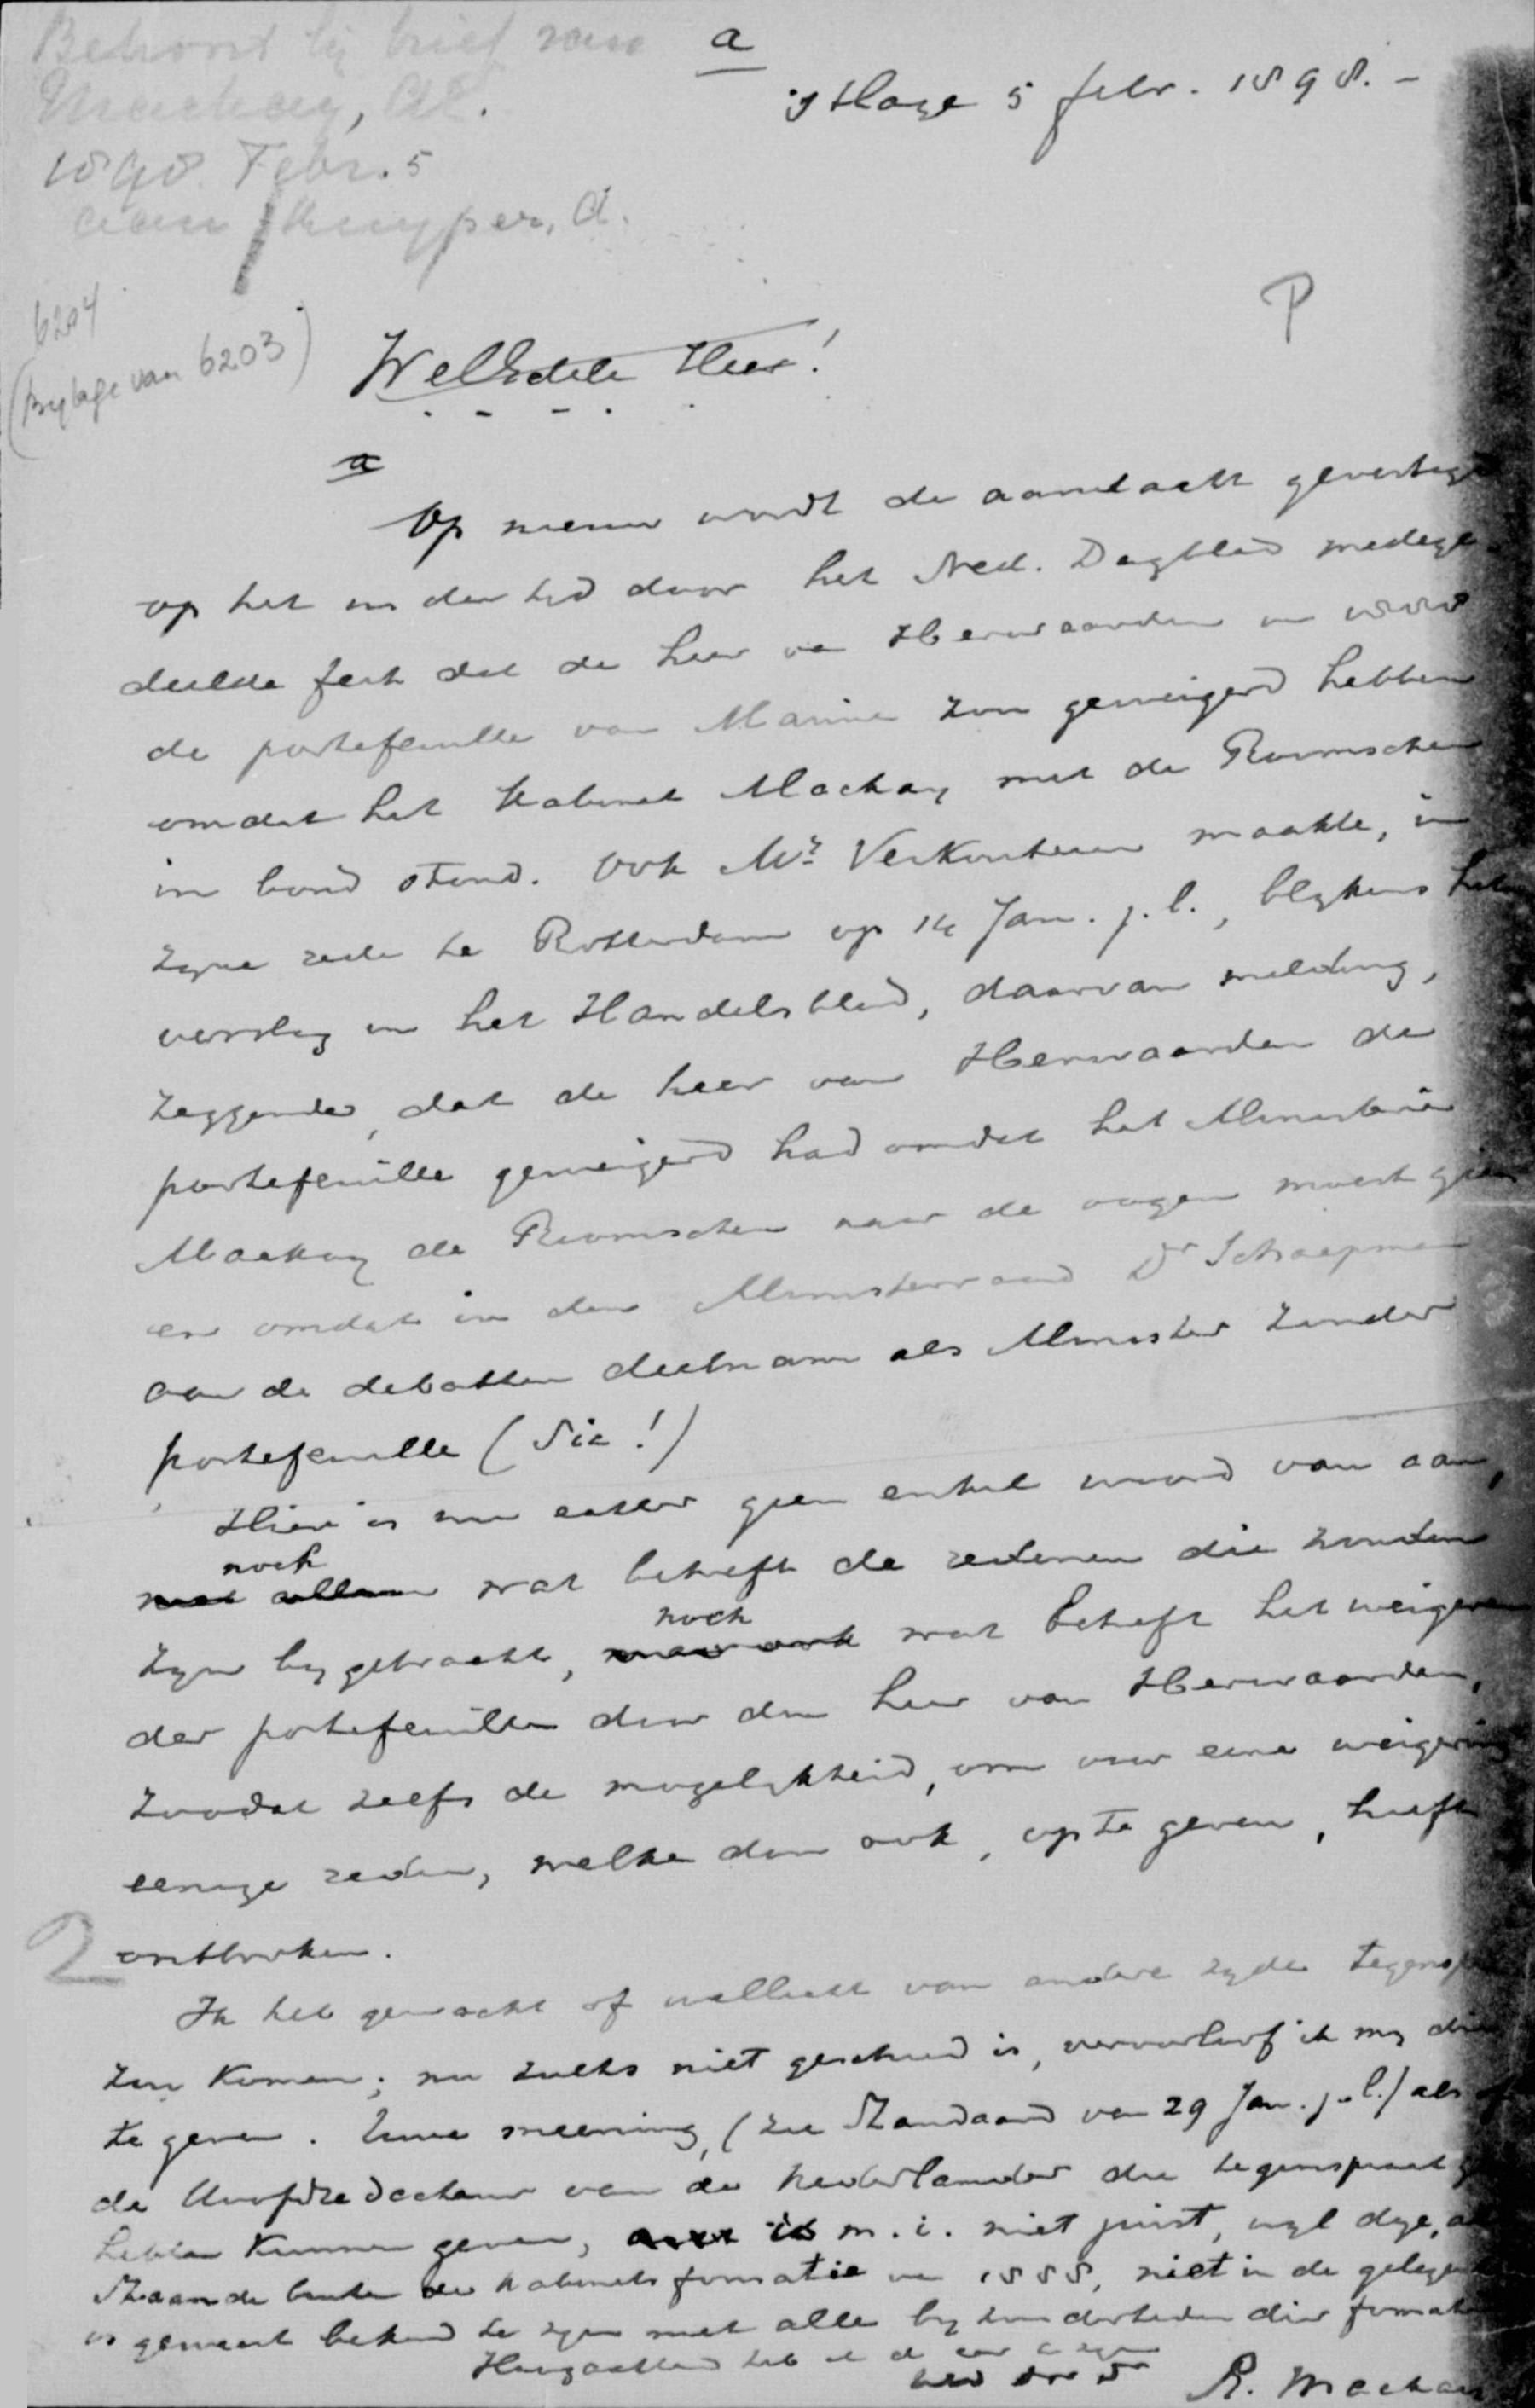 Behoort bij brief van
Mackay, Æ.
1898 Febr. 5
aan Kuyper, A.
a
's Hage 5 febr. 1898. -
6204
(Bijlage van 6203)
P
WelEdele Heer!
a
Op nieuw wordt de aandacht gevestigd
op het in der tijd door het Ned. Dagblad medege-
deelde feit dat de heer van Herwaarden in 1888
de portefeuille van Marine zou geweigerd hebben
omdat het Kabinet Mackay met de Roomschen
in bond stond. Ook Mr. Verkouteren maakte, in
zijne rede te Rotterdam op 14 Jan. j.l., blijkens het
verslag in het Handelsblad, daarvan melding,
zeggende, dat de heer van Herwaarden de
portefeuille geweigerd had omdat het Ministerie
Mackay de Roomschen naar de oogen moest zien
en omdat in den Ministerraad Dr Schaepman
aan de debatten deelnam als Minister zonder
portefeuille (Sic!)
Hier is nu echter geen enkel woord van aan,
noch
niet alleen wat betreft de redenen die zouden
noch
zijn bijgebracht, maar ook wat betreft het weigeren
der portefeuille door den heer van Herwaarden,
zoodat zelfs de mogelijkheid, om voor eene weigering
eenige reden, welke dan ook, op te geven, heeft
2
ontbroken.
Ik heb gewacht of wellicht van andere zijde tegenspraak
zou komen; nu zulks niet geschied is, veroorloof ik mij die
te geven. Uwe meening, (zie Standaard van 29 Jan. j.l.) als of
de Hoofdredacteur van de Nederlander die tegenspraak
hebben kunnen geven, is m.i. niet juist, wijl deze, als
staande buiten de kabinetsformatie in 1888, niet in de gelegenheid
is geweest bekend te zijn met alle bijzonderheden dier formatie
Hoogachtend heb ik de eer te zijn
Æ. Mackay